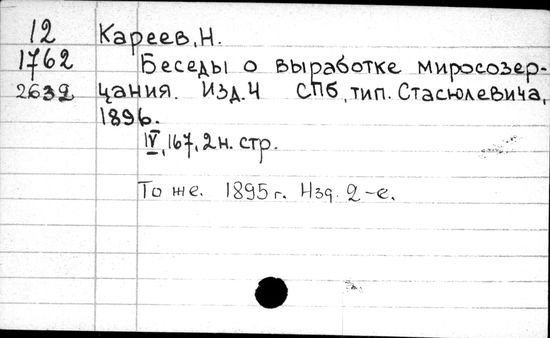 12 Кареев, Н.
1762 Беседы о выработке миросозер-
2632 цания. Изд. 4 СПб, тип. Стасюлевича,
1896.
IV, 167, 2 н. стр.
То же. 1895 г. Изд. 2-е.